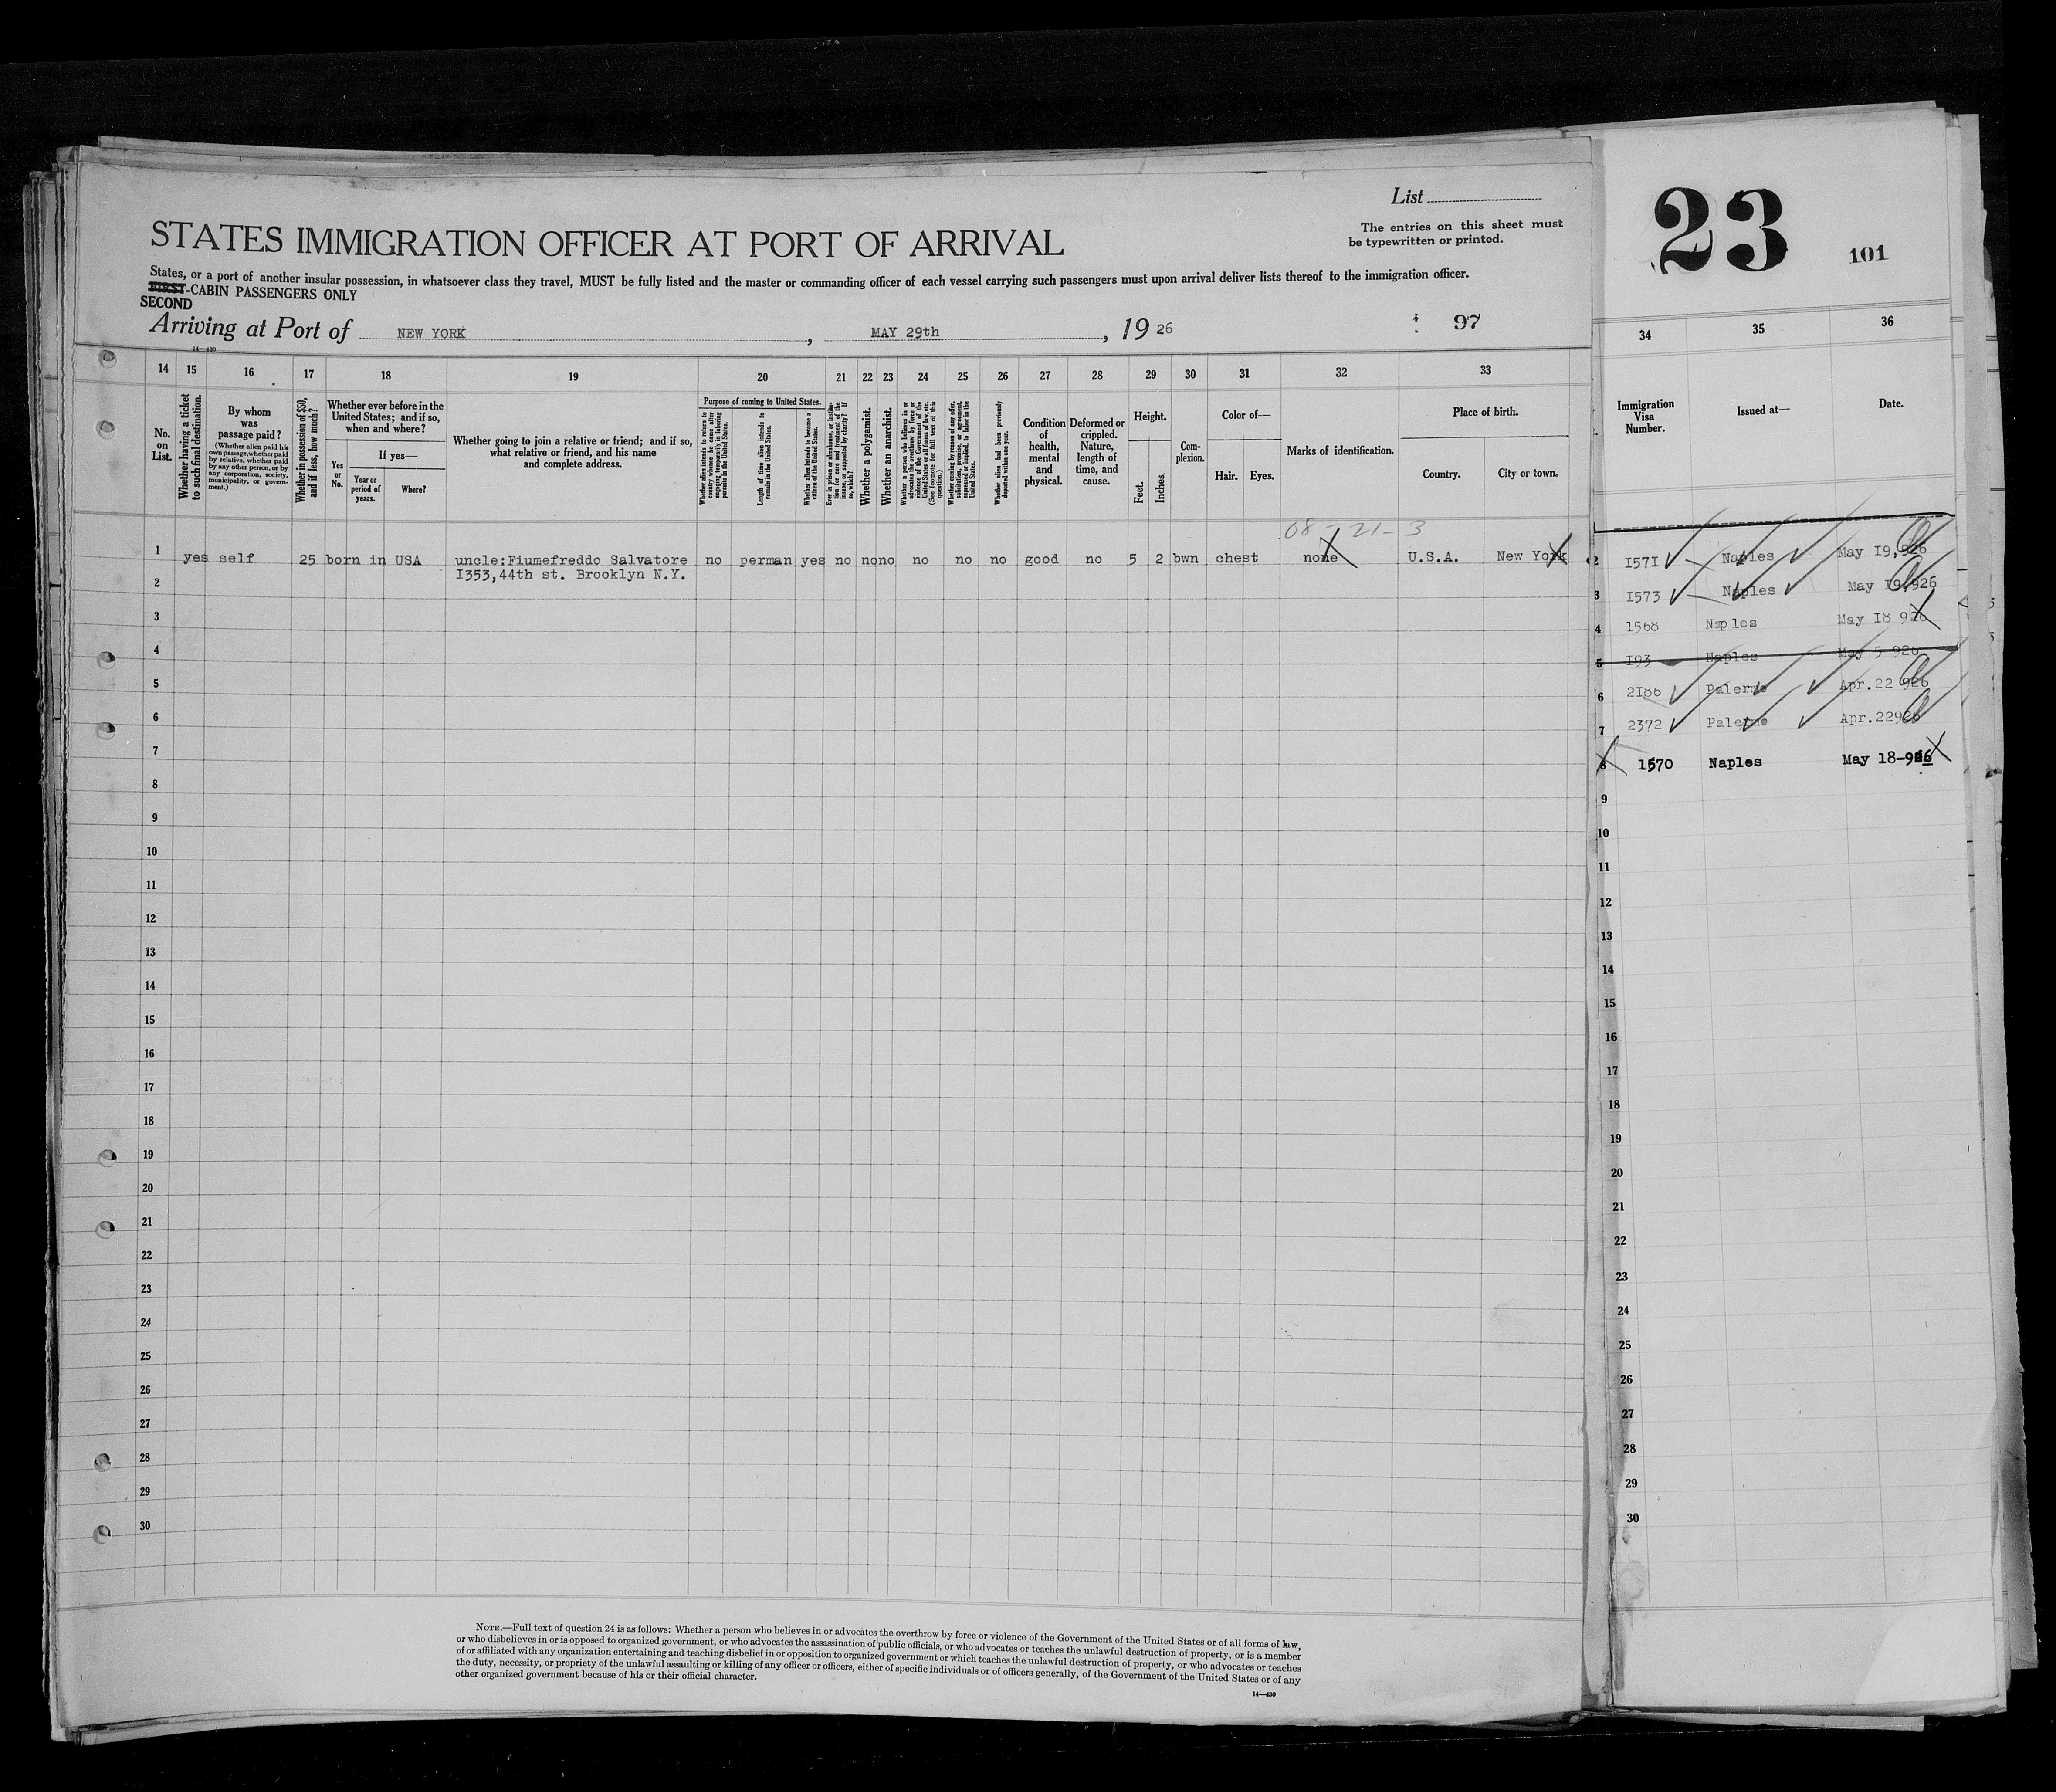 List
The entries on this sheet must
be typewritten or printed.
23
101
STATES IMMIGRATION OFFICER AT PORT OF ARRIVAL
States, or a port of another insular possession, in whatsoever class they travel, MUST be fully listed and the master or commanding officer of each vessel carrying such passengers must upon arrival deliver lists thereof to the immigration officer.
FIRST-CABIN PASSENGERS ONLY
SECOND
Arriving at Port of NEW YORK, MAY 29th, 1926
97
14—430
14 15 16 17 18 19 20 21 22 23 24 25 26 27 28 29 30 31 32 33
34 35 36
No. on List.
Whether having a ticket to such final destination.
By whom was passage paid?
(Whether alien paid his own passage, whether paid by relative, whether paid by any other person, or by any corporation, society, municipality, or government.)
Whether in possession of $50, and if less, how much?
Whether ever before in the United States; and if so, when and where?
Yes or No.
If yes—
Year or period of years.
Where?
Whether going to join a relative or friend; and if so, what relative or friend, and his name and complete address.
Purpose of coming to United States.
Whether alien intends to return to country whence he came after engaging temporarily in laboring pursuits in the United States.
Length of time alien intends to remain in the United States.
Whether alien intends to become a citizen of the United States.
Ever in prison or almshouse, or institution for care and treatment of the insane, or supported by charity? If so, which?
Whether a polygamist.
Whether an anarchist.
Whether a person who believes in or advocates the overthrow by force or violence of the Government of the United States or all forms of law, etc. (See footnote for full text of this question.)
Whether coming by reason of any offer, solicitation, promise, or agreement, expressed or implied, to labor in the United States.
Whether alien had been previously deported within one year.
Condition of health, mental and physical.
Deformed or crippled. Nature, length of time, and cause.
Height.
Feet.
Inches.
Complexion.
Color of—
Hair. Eyes.
Marks of identification.
Place of birth.
Country. City or town.
Immigration Visa Number.
Issued at—
Date.
08-21-3
1 yes self 25 born in USA uncle:Fiumefreddo Salvatore no perman yes no no no no no no good no 5 2 bwn chest none U.S.A. New York
I353,44th st. Brooklyn N.Y.
2
3
4
5
6
7
8
9
10
11
12
13
14
15
16
17
18
19
20
21
22
23
24
25
26
27
28
29
30
2 I571 Naples May I9,926
3 I573 Naples May I9,926
4 1568 Naples May I8 926
5 I93 Naples May 5 926
6 2I86 Palermo Apr.22 926
7 2372 Palermo Apr.22926
8 1570 Naples May 18-926
9
10
11
12
13
14
15
16
17
18
19
20
21
22
23
24
25
26
27
28
29
30
NOTE.—Full text of question 24 is as follows: Whether a person who believes in or advocates the overthrow by force or violence of the Government of the United States or of all forms of law,
or who disbelieves in or is opposed to organized government, or who advocates the assassination of public officials, or who advocates or teaches the unlawful destruction of property, or is a member
of or affiliated with any organization entertaining and teaching disbelief in or opposition to organized government or which teaches the unlawful destruction of property, or who advocates or teaches
the duty, necessity, or propriety of the unlawful assaulting or killing of any officer or officers, either of specific individuals or of officers generally, of the Government of the United States or of any
other organized government because of his or their official character.
14—430